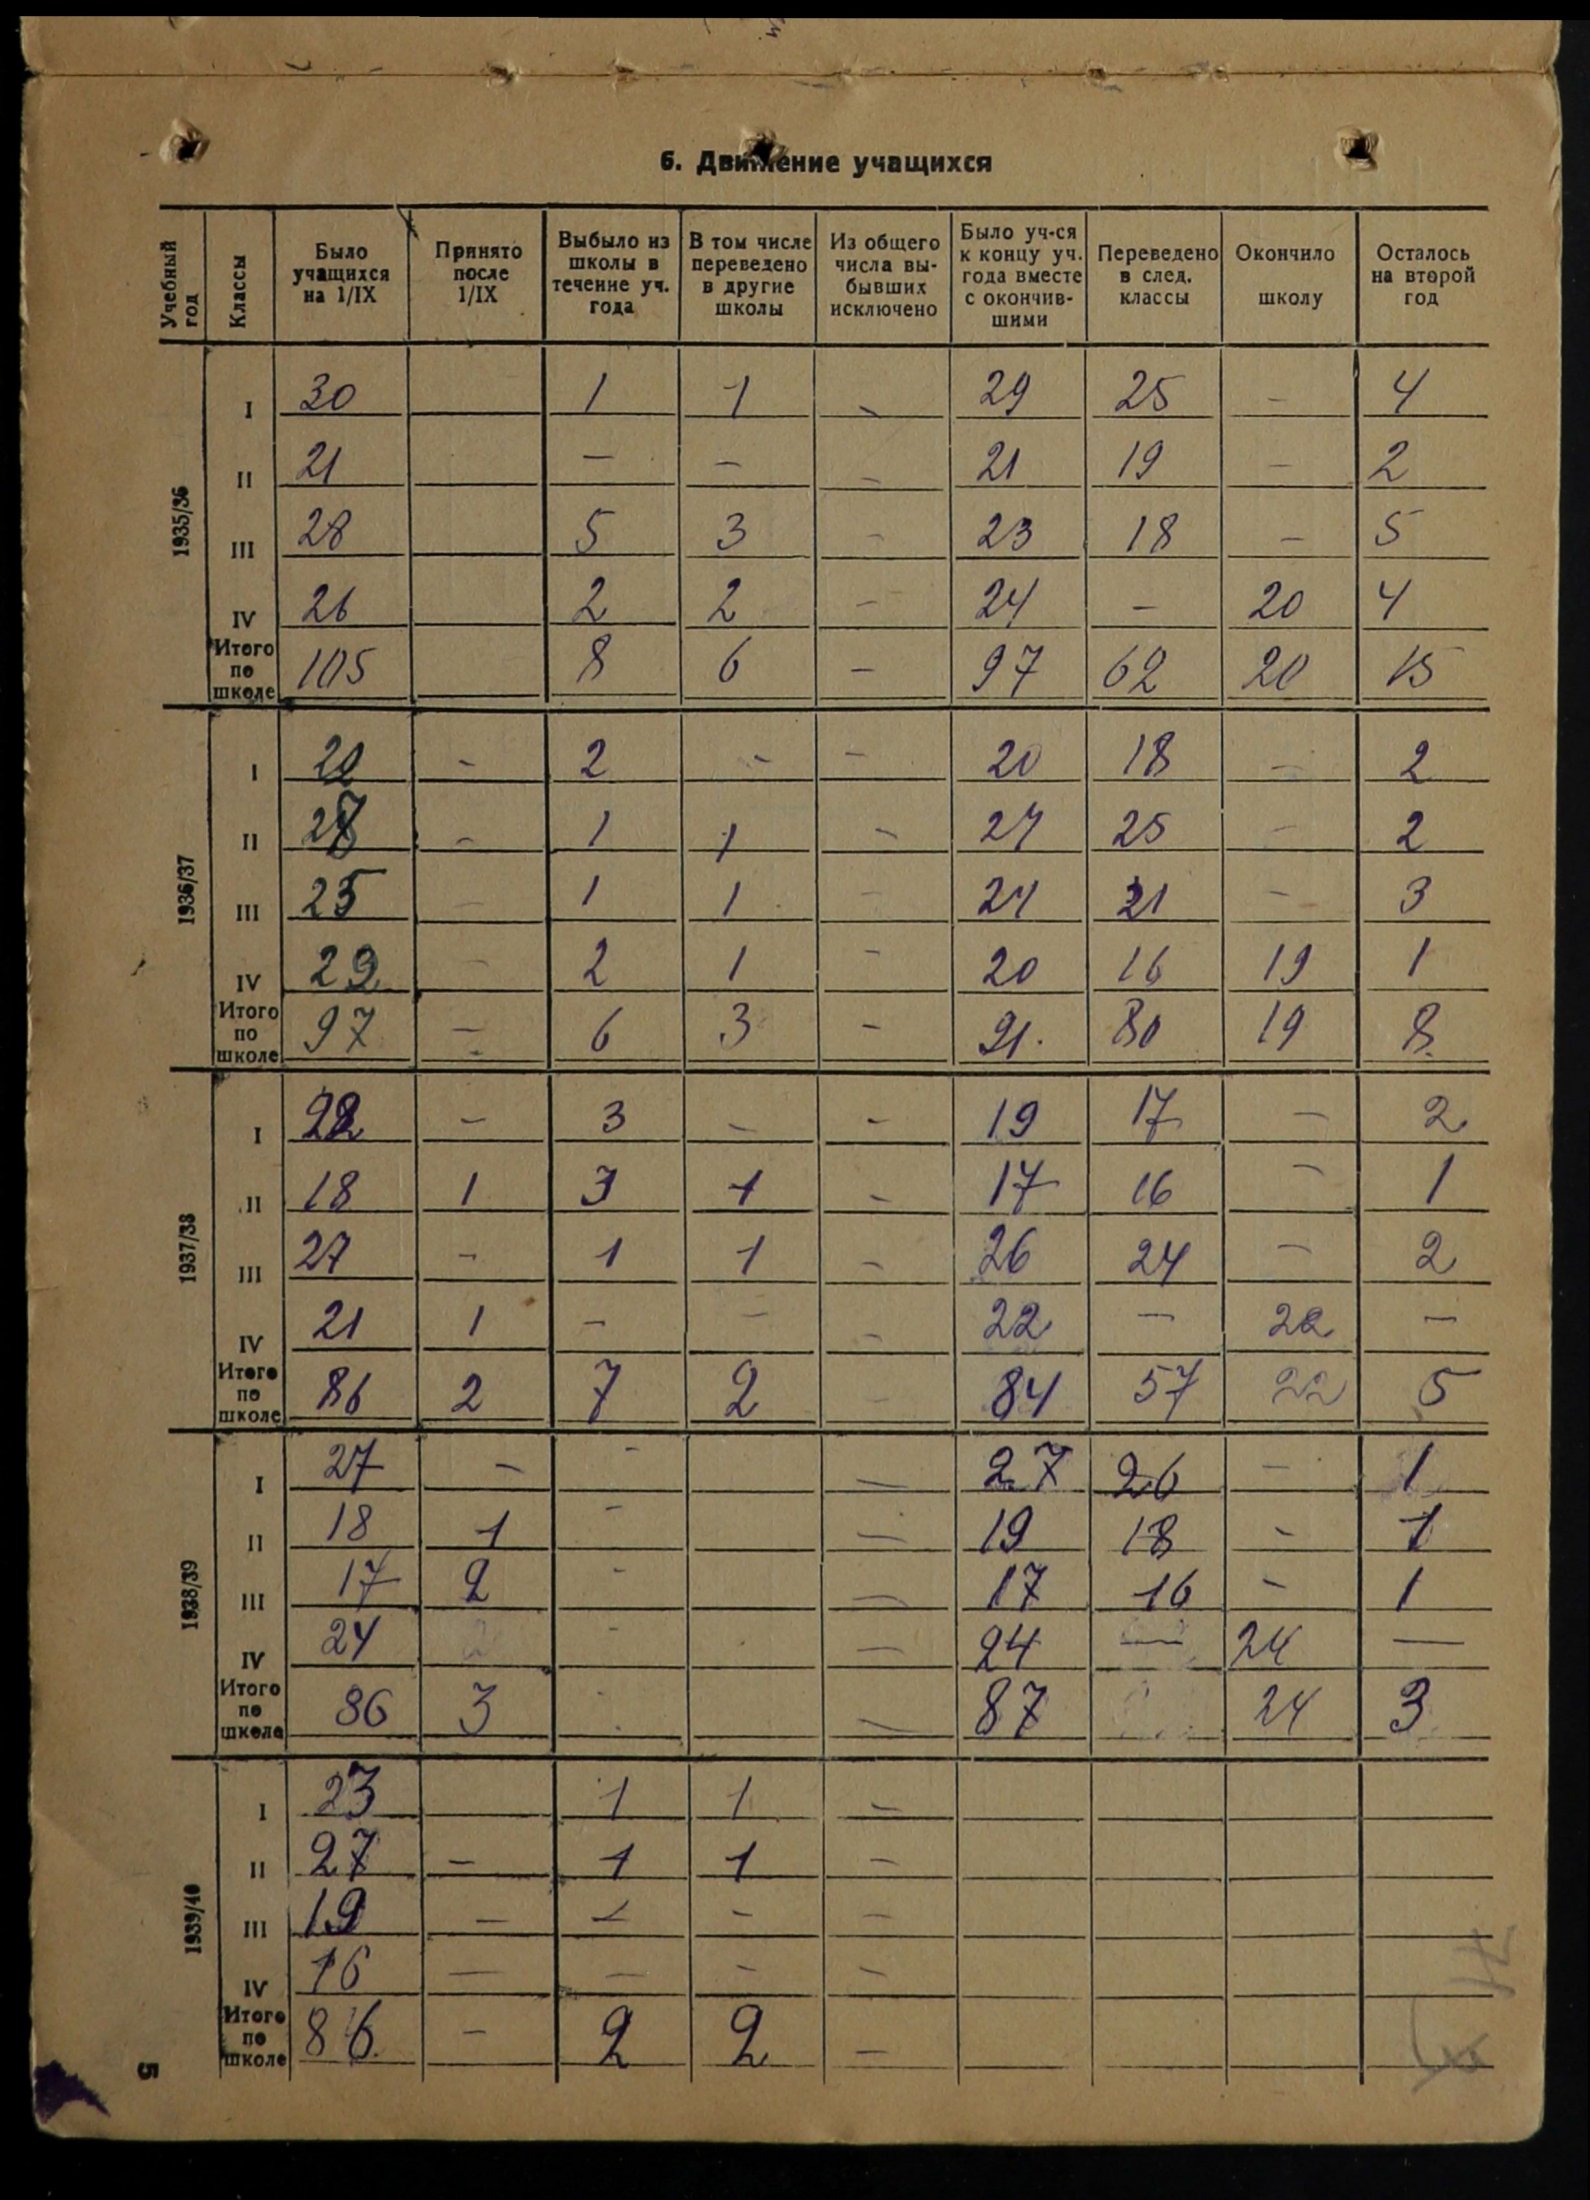 6. Движение учащихся
Учебный год | Классы | Было учащихся на 1/IX | Принято после 1/IX | Выбыло из школы в течение уч. года | В том числе переведено в другие школы | Из общего числа выбывших исключено | Было уч-ся к концу уч. года вместе с окончившими | Переведено в след. классы | Окончило школу | Осталось на второй год
1935/36
I 30 1 1 - 29 25 - 4
II 21 - - - 21 19 - 2
III 28 5 3 - 23 18 - 5
IV 26 2 2 - 24 - 20 4
Итого по школе 105 8 6 - 97 62 20 15
1936/37
I - 2 - - 20 18 - 2
II - 1 1 - 27 25 - 2
III 25 - 1 1 - 24 21 - 3
IV - 2 1 - 20 16 19 1
Итого по школе 97 - 6 3 - 91 80 19 8
1937/38
I 22 - 3 - - 19 17 - 2
II 18 1 3 1 - 17 16 - 1
III 27 - 1 1 - 26 24 - 2
IV 21 1 - - - 22 - 22 -
Итого по школе 86 2 7 2 - 84 57 22 5
1938/39
I 27 - - - 27 26 - 1
II 18 1 - - 19 18 - 1
III 17 2 - - 17 16 - 1
IV 24 - - 24 - 24 -
Итого по школе 86 3 - 87 24 3
1939/40
I 23 1 1 -
II 27 - 1 1 -
III 19 - - - -
IV 16 - - - -
Итого по школе 86 - 2 2 -
5